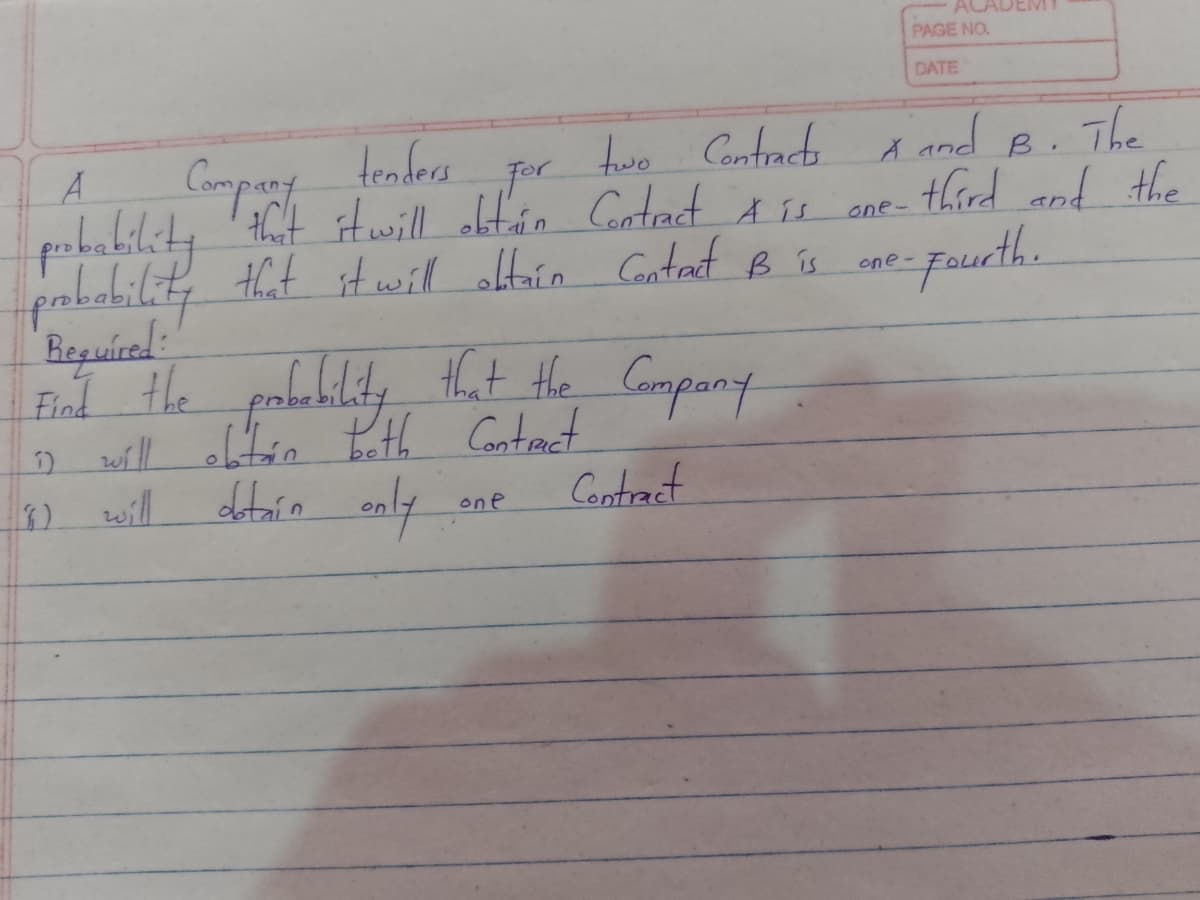 ACADEMY
PAGE NO.
DATE
A Company tenders For two Contracts A and B. The
probability that it will obtain Contract A is one-third and the
probability that it will obtain Contract B is one-Fourth.
Required:
Find the probability that the Company
i) will obtain both Contract
ii) will obtain only one Contract